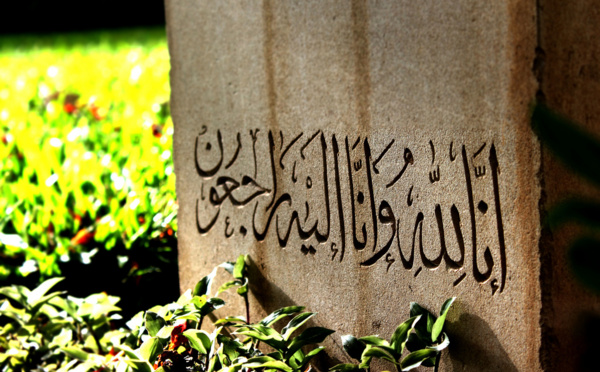 إنّا لِلّهِ وَإنّا إليهِ راجعون